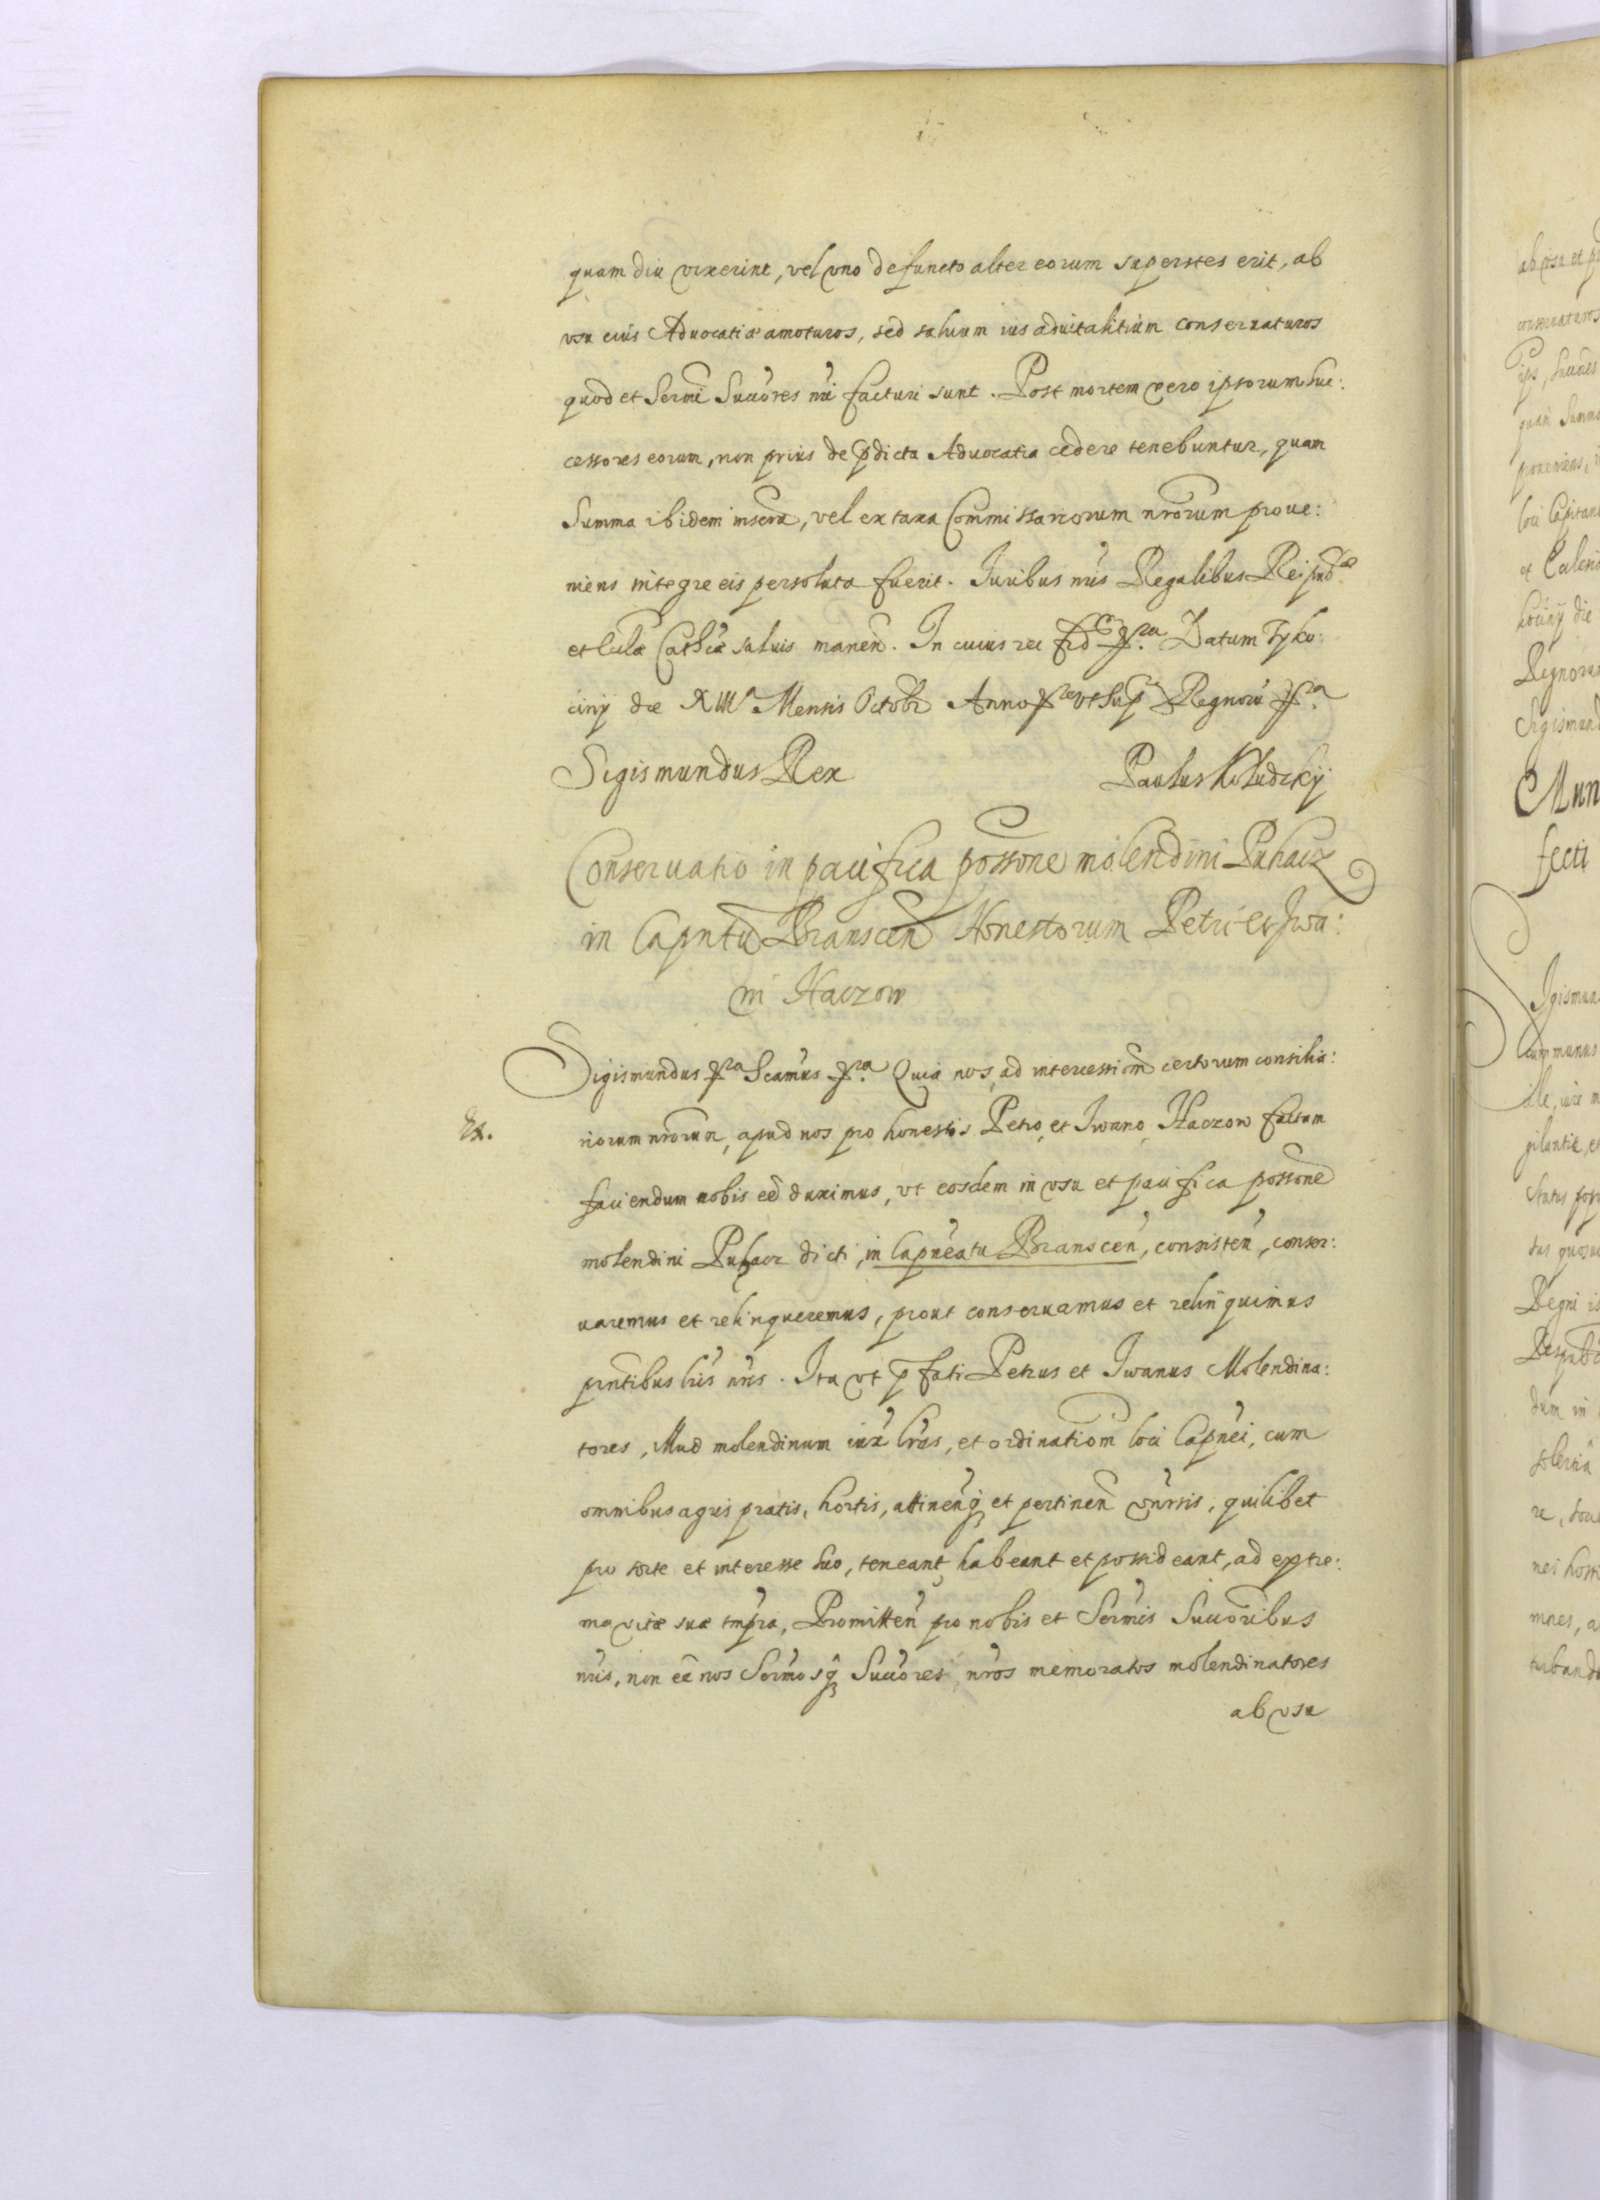 quam diu vixerint, vel vno defuncto alter eorum superstes erit, ab
vsu eius Aduocatiæ amoturos, sed saluum ius aduitalitium conseruaturos
quod et Sermi Succores nri facturi sunt. Post mortem vero ipsorum suc:
cessores eorum, non prius de pdicta Aduocatia cedere tenebuntur, quam
Summa ibidem inscra, vel ex taxa Commissariorum nrorum proue:
niens integre eis persoluta fuerit. Iuribus nris Regalibus Reipub.
et Cath saluis manen. In cuius rei fid Datum Tyko:
cinÿ die Mensis Octobr Anno vt Sup Regnoru
Sigismundus Rex
Paulus Koludzkÿ
Conseruatio in pacifica possone molendini Puhacz
in Capntu Branscen Honestorum Petri et Iwa:
ni Haczow
Sigismundus Scamus Quia nos, ad intercessiom certorum consilia:
Ex.
riorum nrorum, apud nos pro honestis Petro, et Iwano Haczow factam
faciendum nobis ee duximus, vt eosdem in vsu et pacifica possone
molendini Puhacz dicti, in Capneatu Branscen, consisten, conser:
uaremus et relinqueremus, prout conseruamus et relinquimus
pntibus lris nris. Ita vt p fati Petrus et Iwanus Molendina:
tores, illud molendinum iux lras, et ordinatiom loci Capnei, cum
omnibus agris pratis, hortis, attinenq et pertinen vnrsis, quilibet
pro sorte et interesse suo, teneant habeant et possideant, ad extre:
ma vitæ suæ tmpra, Promitten pro nobis et Sermis Succoribus
nris, non ee nos Sermosq Succores nros memoratos molendinatores
ab vsu